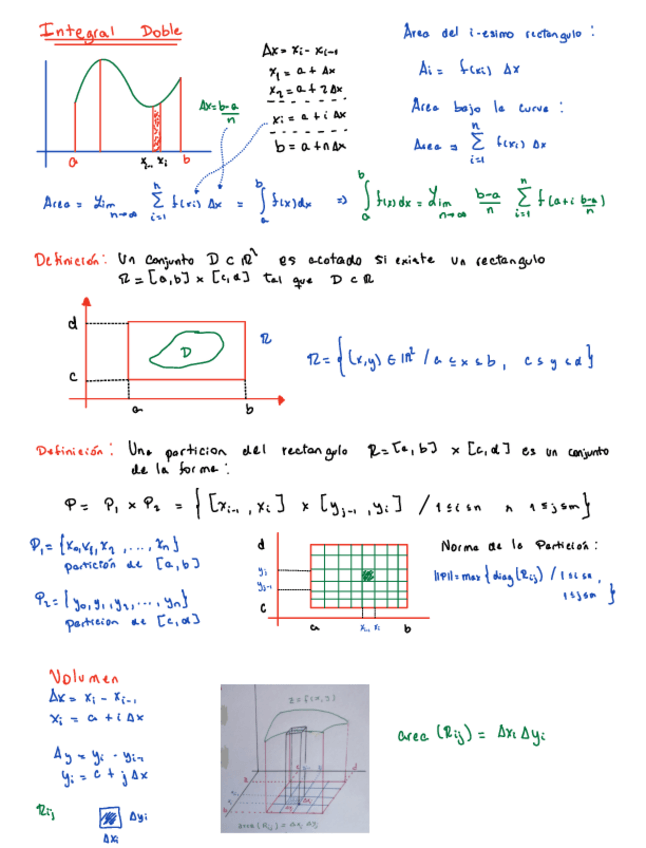 Integral Doble
Δx = xi - xi-1
x1 = a + Δx
x2 = a + 2Δx
xi = a + i Δx
b = a + nΔx
Δx = b-a / n
a xi-1 xi b
Area del i-esimo rectangulo :
Ai = f(xi) Δx
Area bajo la curve :
Area = n Σ i=1 f(xi) Δx
Area = Lim n→∞ n Σ i=1 f(xi) Δx = ∫ a b f(x)dx => ∫ a b f(x)dx = Lim n→∞ b-a / n n Σ i=1 f(a+i b-a / n)
Definición: Un conjunto D ⊂ R² es acotado si existe un rectangulo
R = [a,b] x [c,d] tal que D ⊂ R
d
D
R
c
a b
R = {(x,y) ∈ R² / a ≤ x ≤ b , c ≤ y ≤ d}
Definición: Una particion del rectangulo R = [a,b] x [c,d] es un conjunto
de la forma :
P = P1 x P2 = {[xi-1 , xi] x [yj-1 , yi] / 1 ≤ i ≤ n ∧ 1 ≤ j ≤ m}
P1 = {x0, x1, x2 , ... , xn}
particion de [a,b]
P2 = {y0, y1, y2, ... , yn}
particion de [c,d]
d
yj
yj-1
c
a xi-1 xi b
Norma de la Partición :
||P|| = max {diag(Rij) / 1 ≤ i ≤ n ,
1 ≤ j ≤ m }
Volumen
Δx = xi - xi-1
xi = a + i Δx
Δy = yi - yi-1
yi = c + j Δx
Rij
Δyi
Δxi
z = f(x,y)
area (Rij) = Δxi Δyj
area (Rij) = Δxi Δyi